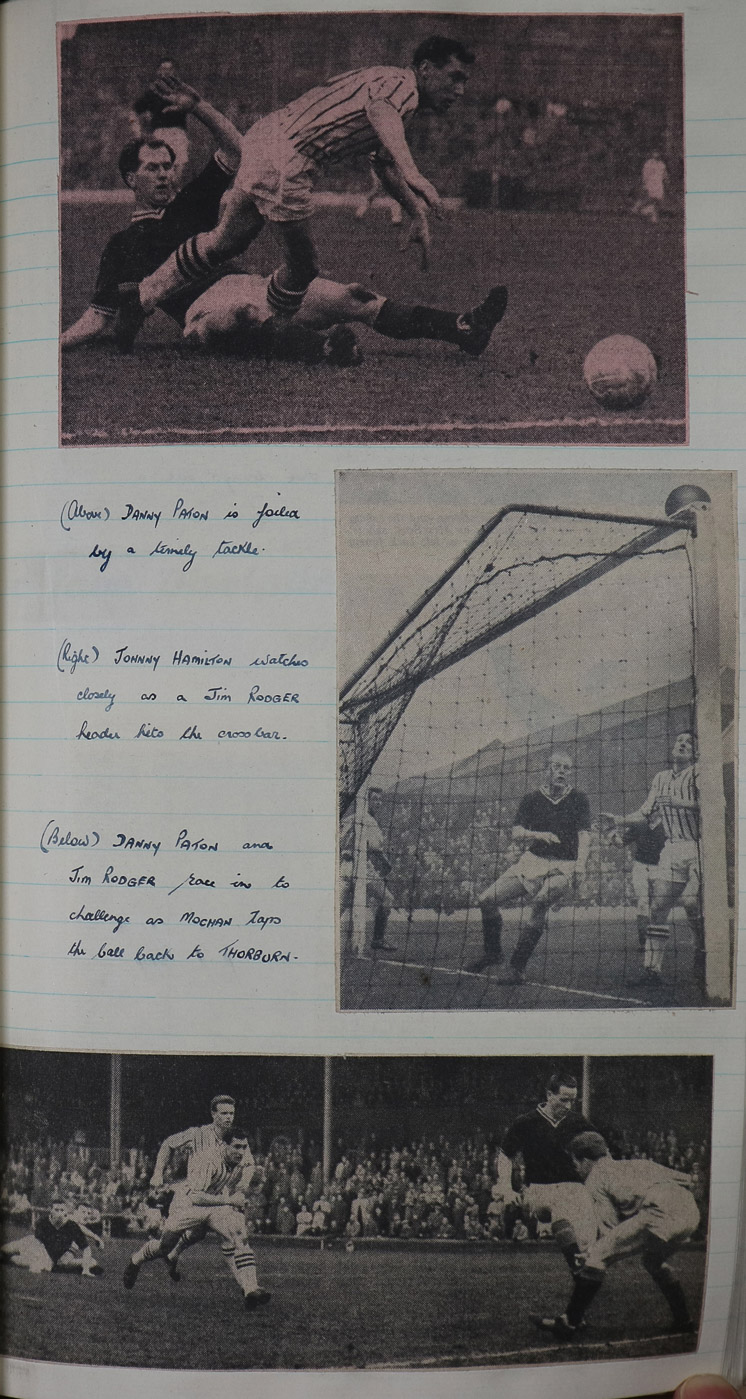 (Above) DANNY PATON is foiled
by a timely tackle.
(Right) JOHNNY HAMILTON watches
closely as a JIM RODGER
header hits the crossbar.
(Below) DANNY PATON and
JIM RODGER race in to
challenge as MOCHAN taps
the ball back to THORBURN.